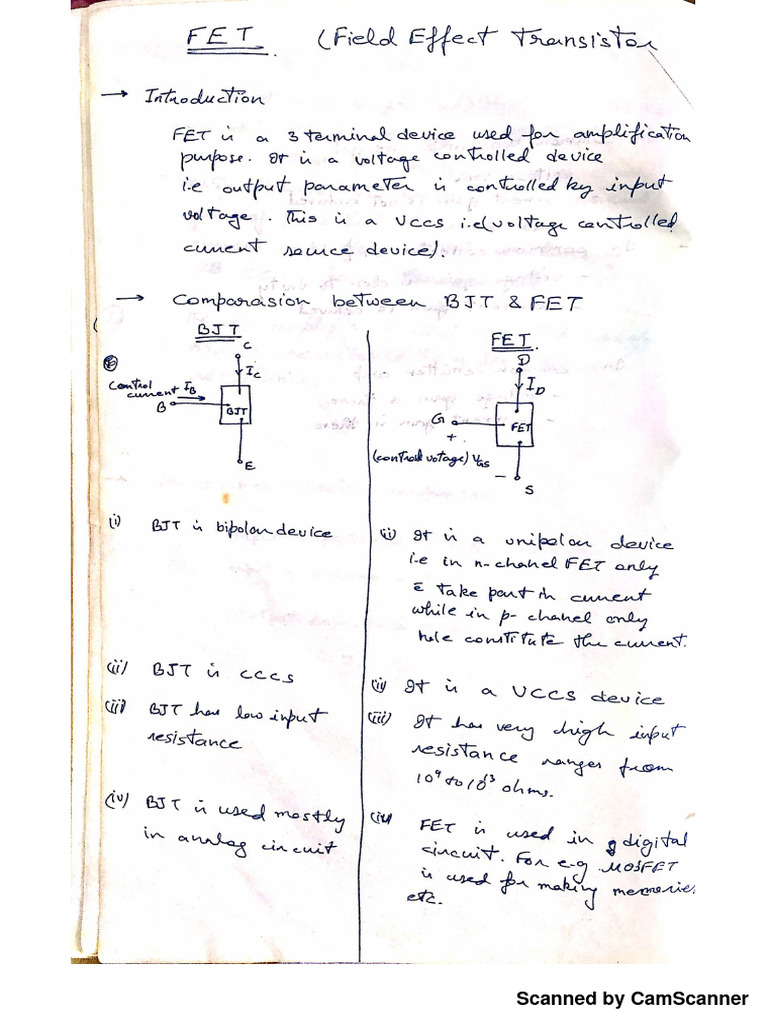 FET (Field Effect Transistor
→ Introduction
FET is a 3 terminal device used for amplification
purpose. It is a voltage controlled device
i.e output parameter is controlled by input
voltage. This is a VCCS i.e (voltage controlled
current source device).
→ Comparasion between BJT & FET
BJT
C
IC
Control
current IB
B
BJT
E
FET.
D
ID
G
+
FET
(control votage) VGS
−
S
(i) BJT is bipolar device
(i) It is a unipolar device
i.e in n-chanel FET only
e take part in current
while in p-chanel only
hole constitute the current.
(ii) BJT is CCCS
(ii) It is a VCCS device
(iii) BJT has low input
resistance
(iii) It has very high input
resistance ranges from
10⁹ to 10¹³ ohms.
(iv) BJT is used mostly
in analog circuit
(iv) FET is used in digital
circuit. For e.g MOSFET
is used for making memories
etc.
Scanned by CamScanner